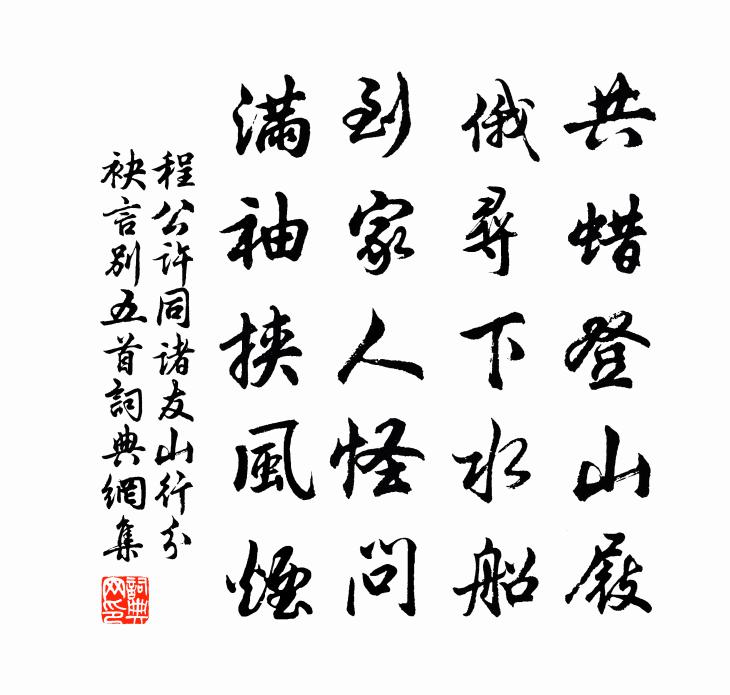 共蜡登山屐
俄尋下水船
到家人怪問
滿袖挾風煙
程公許同諸友山行分
袂言別五首詞典網集
詞典
网印